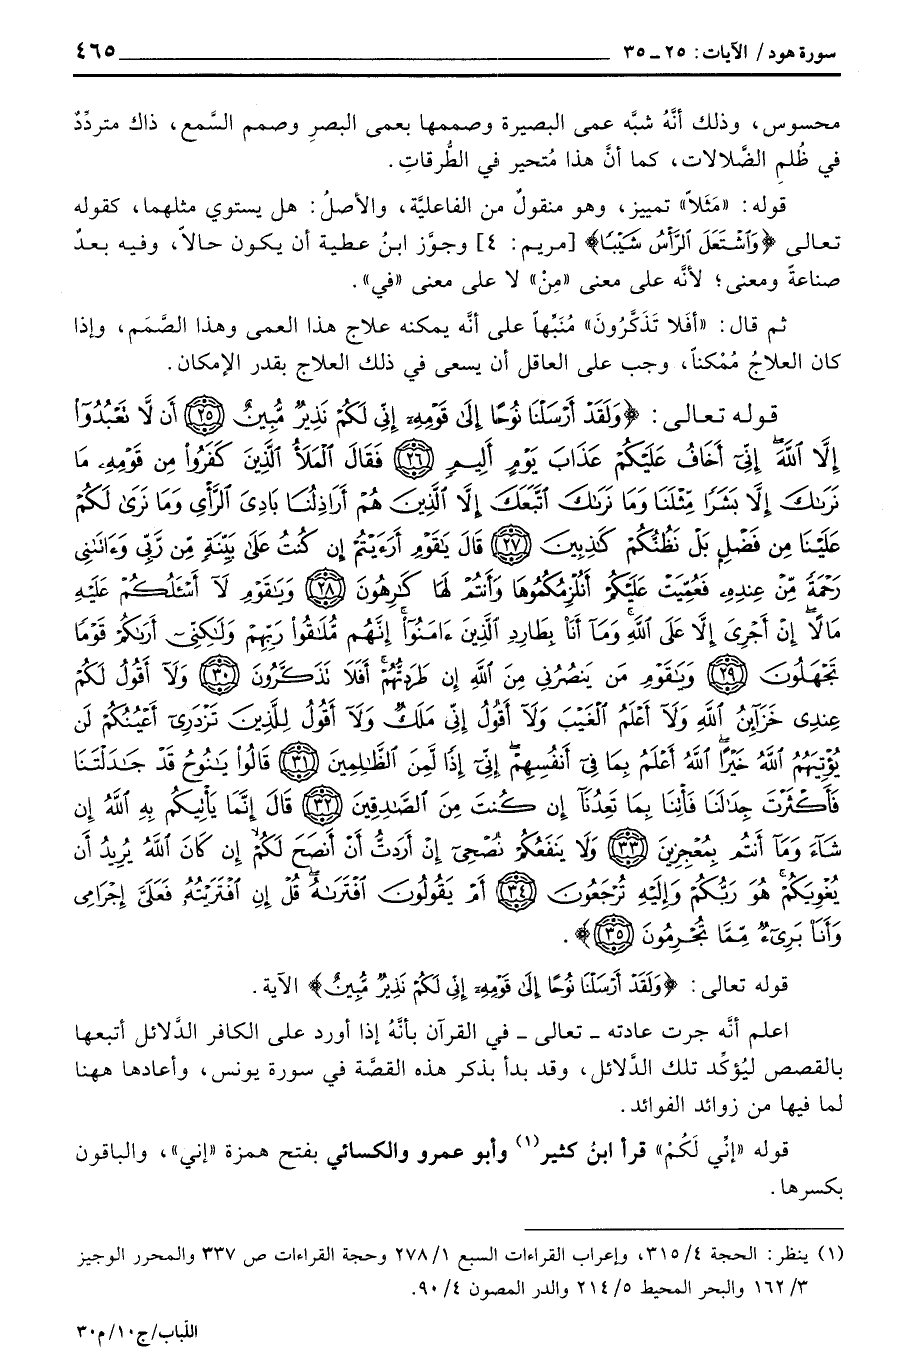 سورة هود/ الآيات: ٢٥ ـ ٣٥ ٤٦٥
محسوس، وذلك أنَّهُ شبَّه عمى البصيرة وصممها بعمى البصرِ وصمم السَّمع، ذاك متردِّدٌ
في ظُلمِ الضَّلالات، كما أنَّ هذا مُتحير في الطُّرقاتِ.
قوله: «مَثَلاً» تمييز، وهو منقولٌ من الفاعليَّة، والأصلُ: هل يستوي مثلهما، كقوله
تعالى ﴿وَٱشْتَعَلَ ٱلرَّأْسُ شَيْبًا﴾ [مريم: ٤] وجوَّز ابنُ عطية أن يكون حالاً، وفيه بعدٌ
صناعةً ومعنى؛ لأنَّه على معنى «مِنْ» لا على معنى «في».
ثم قال: «أَفَلا تَذَكَّرُونَ» مُنَبِّهاً على أنَّه يمكنه علاج هذا العمى وهذا الصَّمَم، وإذا
كان العلاجُ مُمْكناً، وجب على العاقل أن يسعى في ذلك العلاج بقدر الإمكان.
قوله تعالى: ﴿وَلَقَدْ أَرْسَلْنَا نُوحًا إِلَىٰ قَوْمِهِۦٓ إِنِّي لَكُمْ نَذِيرٌ مُّبِينٌ ٢٥ أَن لَّا تَعْبُدُوٓا۟
إِلَّا ٱللَّهَ ۖ إِنِّىٓ أَخَافُ عَلَيْكُمْ عَذَابَ يَوْمٍ أَلِيمٍ ٢٦ فَقَالَ ٱلْمَلَأُ ٱلَّذِينَ كَفَرُوا۟ مِن قَوْمِهِۦ مَا
نَرَىٰكَ إِلَّا بَشَرًا مِّثْلَنَا وَمَا نَرَىٰكَ ٱتَّبَعَكَ إِلَّا ٱلَّذِينَ هُمْ أَرَاذِلُنَا بَادِىَ ٱلرَّأْىِ وَمَا نَرَىٰ لَكُمْ
عَلَيْنَا مِن فَضْلٍۭ بَلْ نَظُنُّكُمْ كَٰذِبِينَ ٢٧ قَالَ يَٰقَوْمِ أَرَءَيْتُمْ إِن كُنتُ عَلَىٰ بَيِّنَةٍ مِّن رَّبِّى وَءَاتَىٰنِى
رَحْمَةً مِّنْ عِندِهِۦ فَعُمِّيَتْ عَلَيْكُمْ أَنُلْزِمُكُمُوهَا وَأَنتُمْ لَهَا كَٰرِهُونَ ٢٨ وَيَٰقَوْمِ لَآ أَسْـَٔلُكُمْ عَلَيْهِ
مَالًا ۖ إِنْ أَجْرِىَ إِلَّا عَلَى ٱللَّهِ ۚ وَمَآ أَنَا۠ بِطَارِدِ ٱلَّذِينَ ءَامَنُوٓا۟ ۚ إِنَّهُم مُّلَٰقُوا۟ رَبِّهِمْ وَلَٰكِنِّىٓ أَرَىٰكُمْ قَوْمًا
تَجْهَلُونَ ٢٩ وَيَٰقَوْمِ مَن يَنصُرُنِى مِنَ ٱللَّهِ إِن طَرَدتُّهُمْ ۚ أَفَلَا تَذَكَّرُونَ ٣٠ وَلَآ أَقُولُ لَكُمْ
عِندِى خَزَآئِنُ ٱللَّهِ وَلَآ أَعْلَمُ ٱلْغَيْبَ وَلَآ أَقُولُ إِنِّى مَلَكٌ وَلَآ أَقُولُ لِلَّذِينَ تَزْدَرِىٓ أَعْيُنُكُمْ لَن
يُؤْتِيَهُمُ ٱللَّهُ خَيْرًا ۖ ٱللَّهُ أَعْلَمُ بِمَا فِىٓ أَنفُسِهِمْ ۖ إِنِّىٓ إِذًا لَّمِنَ ٱلظَّٰلِمِينَ ٣١ قَالُوا۟ يَٰنُوحُ قَدْ جَٰدَلْتَنَا
فَأَكْثَرْتَ جِدَٰلَنَا فَأْتِنَا بِمَا تَعِدُنَآ إِن كُنتَ مِنَ ٱلصَّٰدِقِينَ ٣٢ قَالَ إِنَّمَا يَأْتِيكُم بِهِ ٱللَّهُ إِن
شَآءَ وَمَآ أَنتُم بِمُعْجِزِينَ ٣٣ وَلَا يَنفَعُكُمْ نُصْحِىٓ إِنْ أَرَدتُّ أَنْ أَنصَحَ لَكُمْ إِن كَانَ ٱللَّهُ يُرِيدُ أَن
يُغْوِيَكُمْ ۚ هُوَ رَبُّكُمْ وَإِلَيْهِ تُرْجَعُونَ ٣٤ أَمْ يَقُولُونَ ٱفْتَرَىٰهُ ۖ قُلْ إِنِ ٱفْتَرَيْتُهُۥ فَعَلَىَّ إِجْرَامِى
وَأَنَا۠ بَرِىٓءٌ مِّمَّا تُجْرِمُونَ ٣٥﴾.
قوله تعالى: ﴿وَلَقَدْ أَرْسَلْنَا نُوحًا إِلَىٰ قَوْمِهِۦٓ إِنِّي لَكُمْ نَذِيرٌ مُّبِينٌ﴾ الآية.
اعلم أنَّه جرت عادته ـ تعالى ـ في القرآن بأنَّهُ إذا أورد على الكافر الدَّلائل أتبعها
بالقصص ليُؤكِّد تلك الدَّلائل، وقد بدأ بذكر هذه القصَّة في سورة يونس، وأعادها ههنا
لما فيها من زوائد الفوائد.
قوله «إِنِّي لَكُمْ» قرأ ابنُ كثير(١) وأبو عمرو والكسائي بفتح همزة «إني»، والباقون
بكسرها.
(١) ينظر: الحجة ٤/ ٣١٥، وإعراب القراءات السبع ١/ ٢٧٨ وحجة القراءات ص ٣٣٧ والمحرر الوجيز
٣/ ١٦٢ والبحر المحيط ٥/ ٢١٤ والدر المصون ٤/ ٩٠.
اللباب/ج١٠/م٣٠